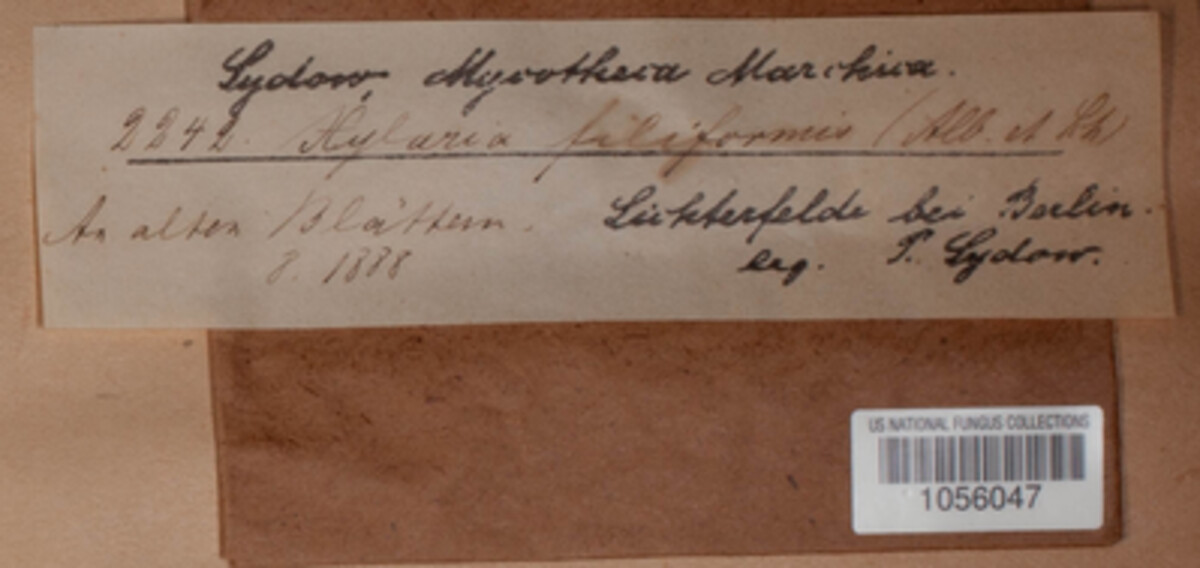 Sydow, Mycotheca Marchica.
2242. Xylaria filiformis (Alb. et Sch)
An alten Blättern. Lichterfelde bei Berlin.
8. 1888 leg. P. Sydow.
US NATIONAL FUNGUS COLLECTIONS
1056047